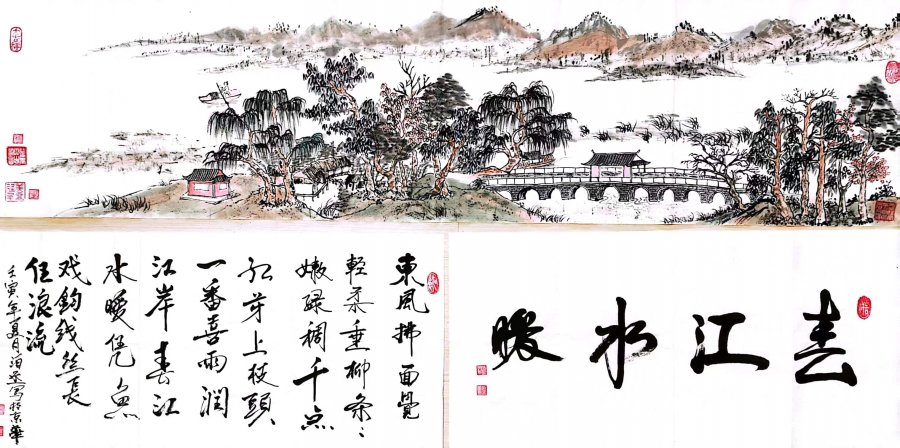 春江水暖
東風拂面覺
輕柔垂柳条々
嫩緑稠千点
红芽上枝頭
一番喜雨润
江岸春江
水暖凭魚
戏钩线丝長
任浪流
壬寅年夏月写於京華